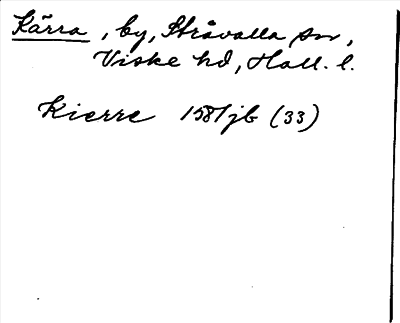 Kärra, by, Stråvalla sn,
Viske hd, Hall. l.
Kierre 1581 jb (33)